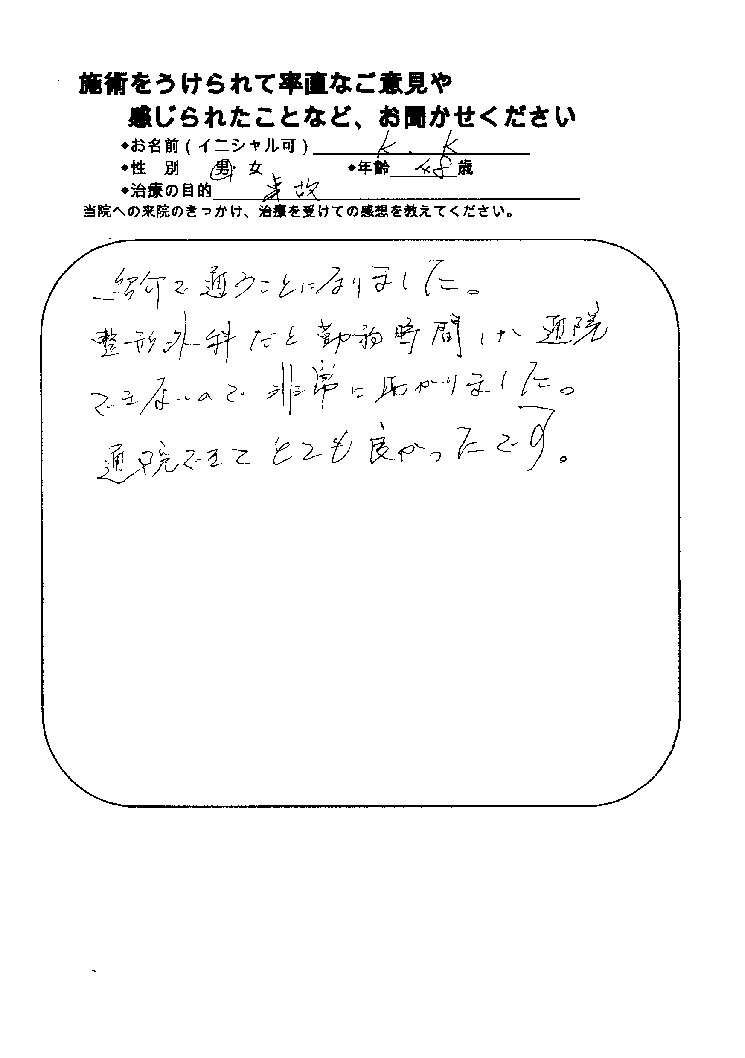 施術をうけられて率直なご意見や
感じられたことなど、お聞かせください
◆お名前(イニシャル可) K.K
◆性 別 男 女 ◆年齢 48 歳
◆治療の目的 事故
当院への来院のきっかけ、治療を受けての感想を教えてください。
紹介で通うことになりました。
整形外科だと勤務時間中 通院
できないので非常に助かりました。
通院できてとても良かったです。